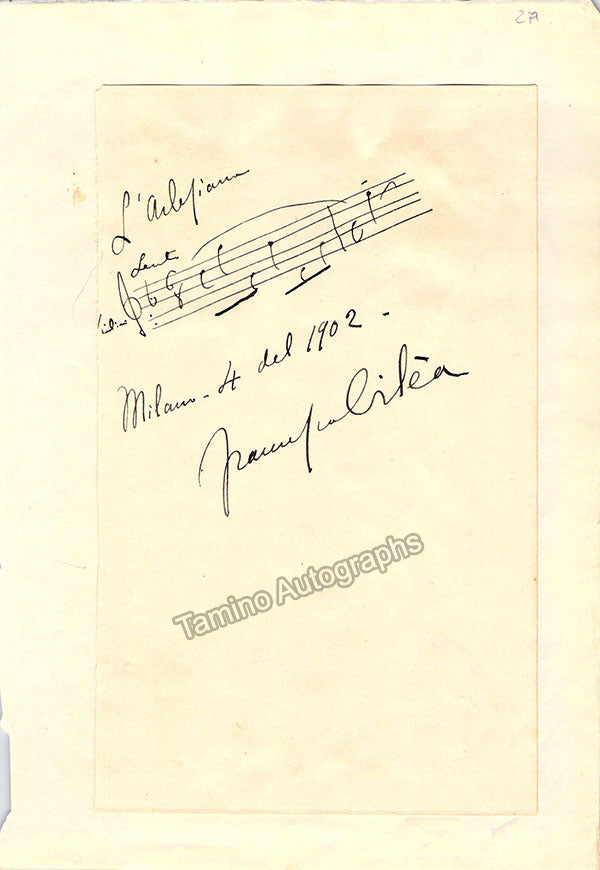 27
L'Arlesiana
Lento
Violini
Milano - 4 del 1902 -
Francesco Cilèa
Tamino Autographs